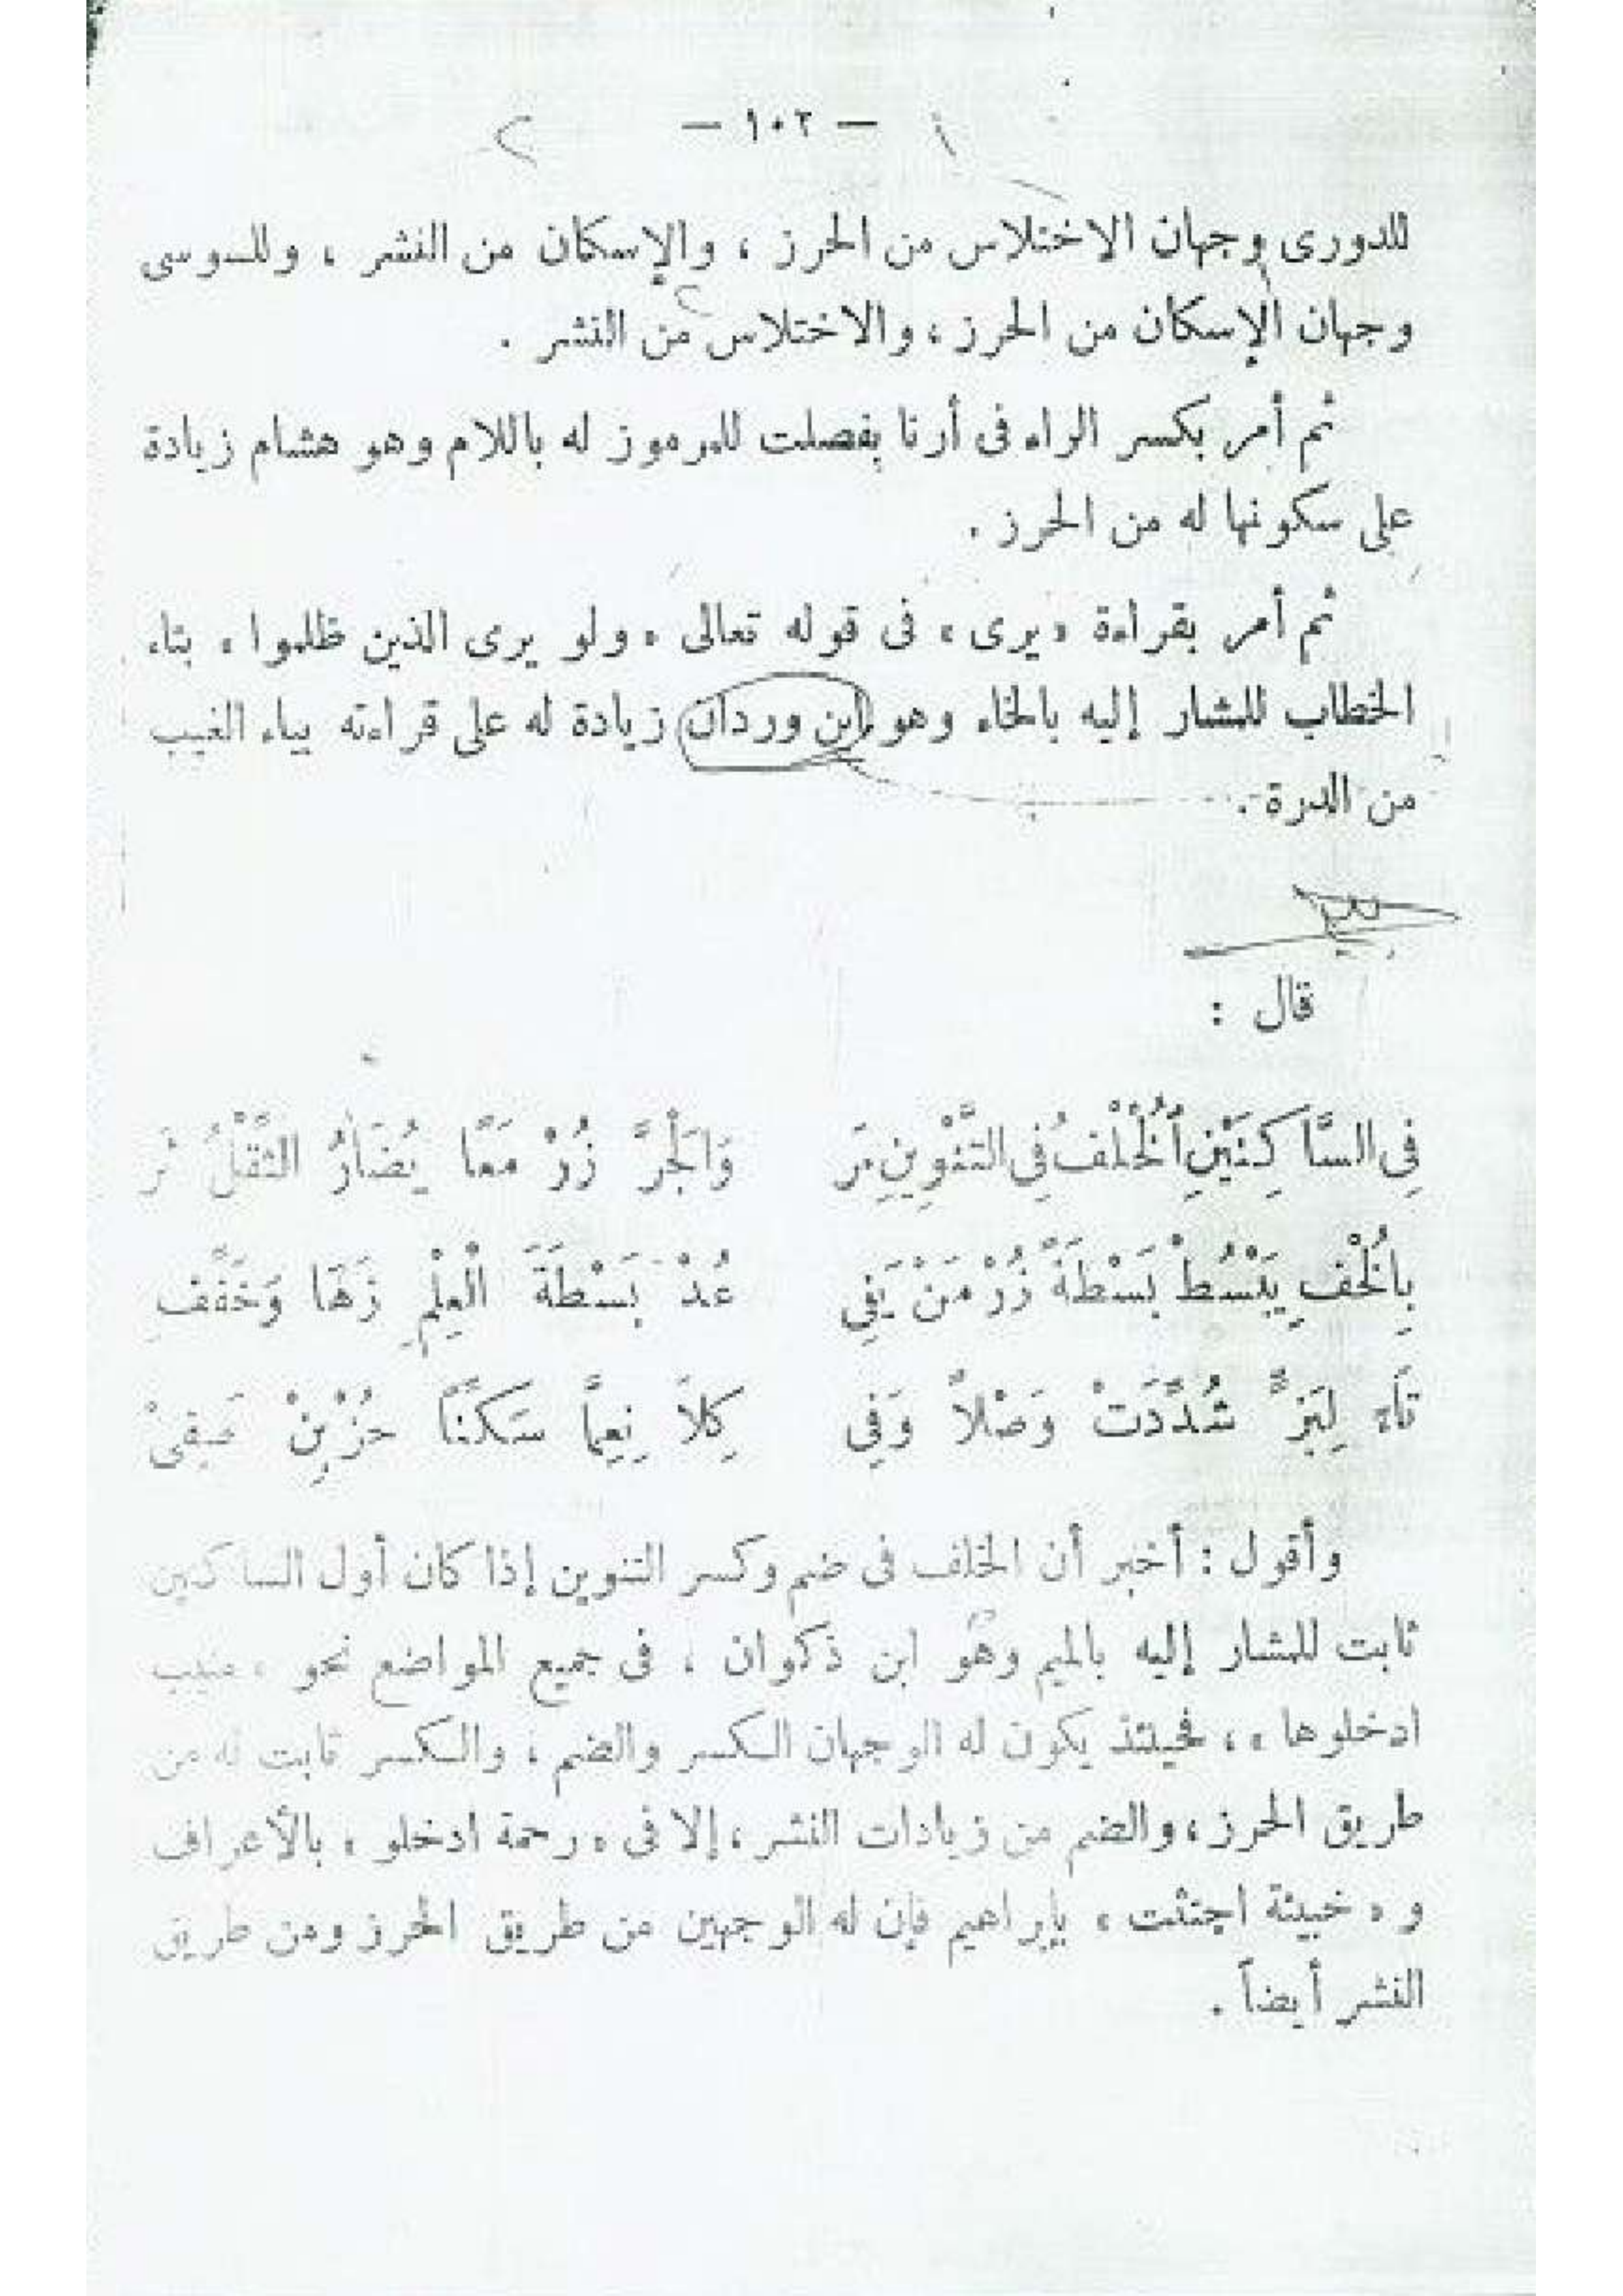 — ١٠٢ —
للدورى وجهان الاختلاس من الحرز ، والإسكان من النشر ، وللسوسى
وجهان الإسكان من الحرز ، والاختلاس من النشر .
ثم أمر بكسر الراء فى أرنا بفصلت للمرموز له باللام وهو هشام زيادة
على سكونها له من الحرز .
ثم أمر بقراءة « يرى » فى قوله تعالى « ولو يرى الذين ظلموا » بتاء
الخطاب للمشار إليه بالخاء وهو ابن وردان زيادة له على قراءته بياء الغيب
من الدرة .
قال :
فِى السَّاكِنَيْنِ اُلْخُلْفُ فِى التَّنْوِينِ مَر وَالْجَرَّ زُرْ مَعًا يُضَارُ الثِّقْلُ ثَر
بِاُلْخُلْفِ يَبْسُطْ بَسْطَةً زُرْ مَنْ يَفِى عُدْ بَسْطَةَ الْعِلْمِ زَهَا وَخَفِّفِ
تَاءَ لِبَزٍّ شُدِّدَتْ وَصْلاً وَفِى كِلاَ نِعِمَّا سَكِّنًا حُزْ بِنْ صَفِىْ
وأقول : أخبر أن الخلف فى ضم وكسر التنوين إذا كان أول الساكنين
ثابت للمشار إليه بالميم وهو ابن ذكوان ، فى جميع المواضع نحو « منيب
ادخلوها » ، فحينئذ يكون له الوجهان الكسر والضم ، والكسر ثابت له من
طريق الحرز ، والضم من زيادات النشر ، إلا فى « رحمة ادخلو » بالأعراف
و « خبيثة اجتثت » بإبراهيم فإن له الوجهين من طريق الحرز ومن طريق
النشر أيضاً .